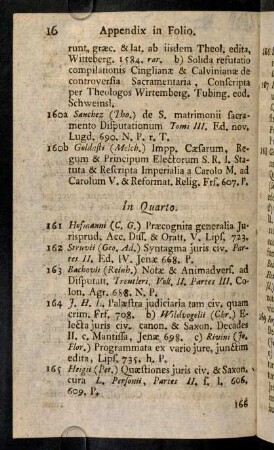 16 Appendix in Folio.
runt, græc. & lat. ab iisdem Theol. edita,
Witteberg. 1584. rar. b) Solida refutatio
compilationis Cinglianæ & Calvinianæ de
controversia Sacramentaria, Conscripta
per Theologos Wirtemberg. Tubing. eod.
Schweinsl.
160a Sanchez (Tho.) de S. matrimonii sacra-
mento Disputationum Tomi III. Ed. nov.
Lugd. 690. N. P. r. T.
160b Goldasti (Melch.) Impp. Cæsarum, Re-
gum & Principum Electorum S. R. I. Sta-
tuta & Rescripta Imperialia a Carolo M. ad
Carolum V. & Reformat. Relig. Frf. 607. P.
In Quarto.
161 Hofmanni (C. G.) Præcognita generalia Ju-
risprud. Acc. Diss. & Oratt. V. Lips. 723.
162 Struvii (Geo. Ad.) Syntagma juris civ. Par-
tes II. Ed. IV. Jenæ 668. P.
163 Bachovii (Reinh.) Notæ & Animadvers. ad
Disputatt. Treutleri, Vol. II. Partes III. Co-
lon. Agr. 688. N. P.
164 J. H. L. Palæstra judiciaria tam civ. quam
crim. Frf. 708. b) Wildvogelii (Chr.) E-
lecta juris civ. canon. & Saxon. Decades
II. c. Mantissa, Jenæ 698. c) Rivini (Jo.
Flor.) Programmata ex vario jure, junctim
edita, Lips. 735. h. P.
165 Heigii (Pet.) Quæstiones juris civ. & Saxon.
cura L. Personii, Partes II. s. l. 606.
609. P.
166